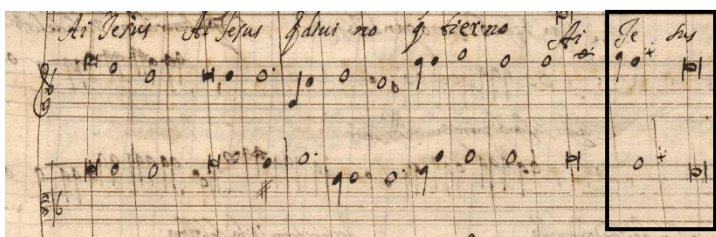 Ai Jesus Ai Jesus q̃ diui no q̃ tierno Ai Je sus